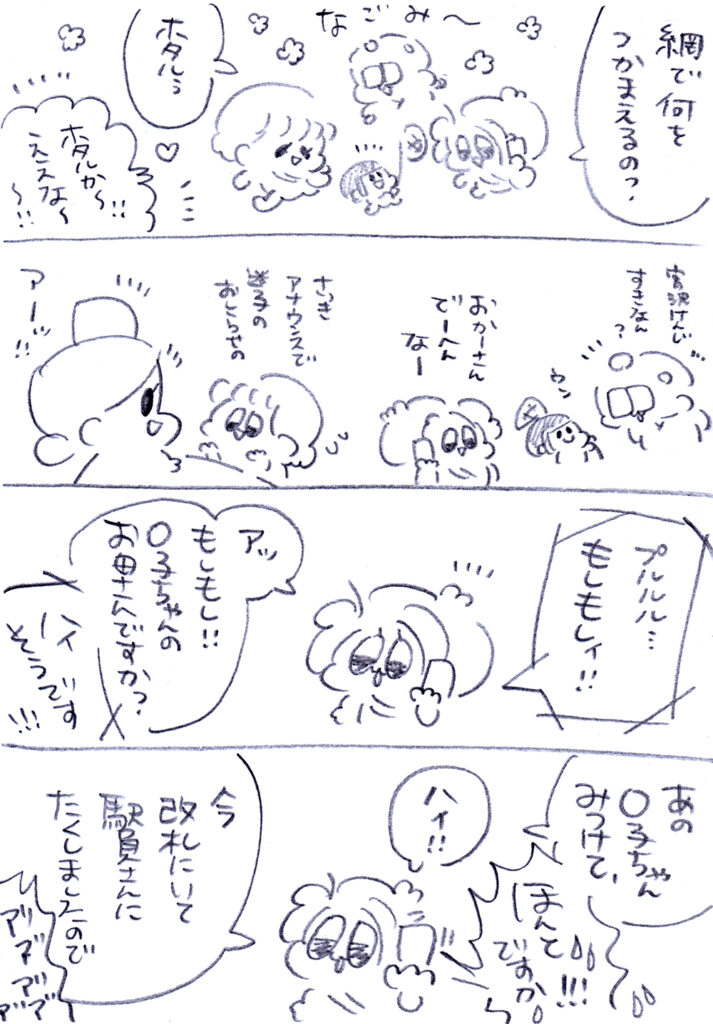 網で何を
つかまえるの?
なごみ〜
ホタルぅ
ホタルか〜!!
ええな〜
〜!!
宮沢けんじ
すきなん
?
ウン
おかーさん
でーへん
なー
さっき
アナウンスで
迷子の
おしらせの
アーッ!!
プルルル…
もしもしィ!!
アッ
もしもし!!
〇子ちゃんの
お母さんですか?
ハイ
そうです
!!!
あの
〇子ちゃん
みつけて、
ほんと
ですか
!!!
ハイ!!
今
改札にいて
駅員さんに
たくしましたので
アリ
アリ
アリ
アリ